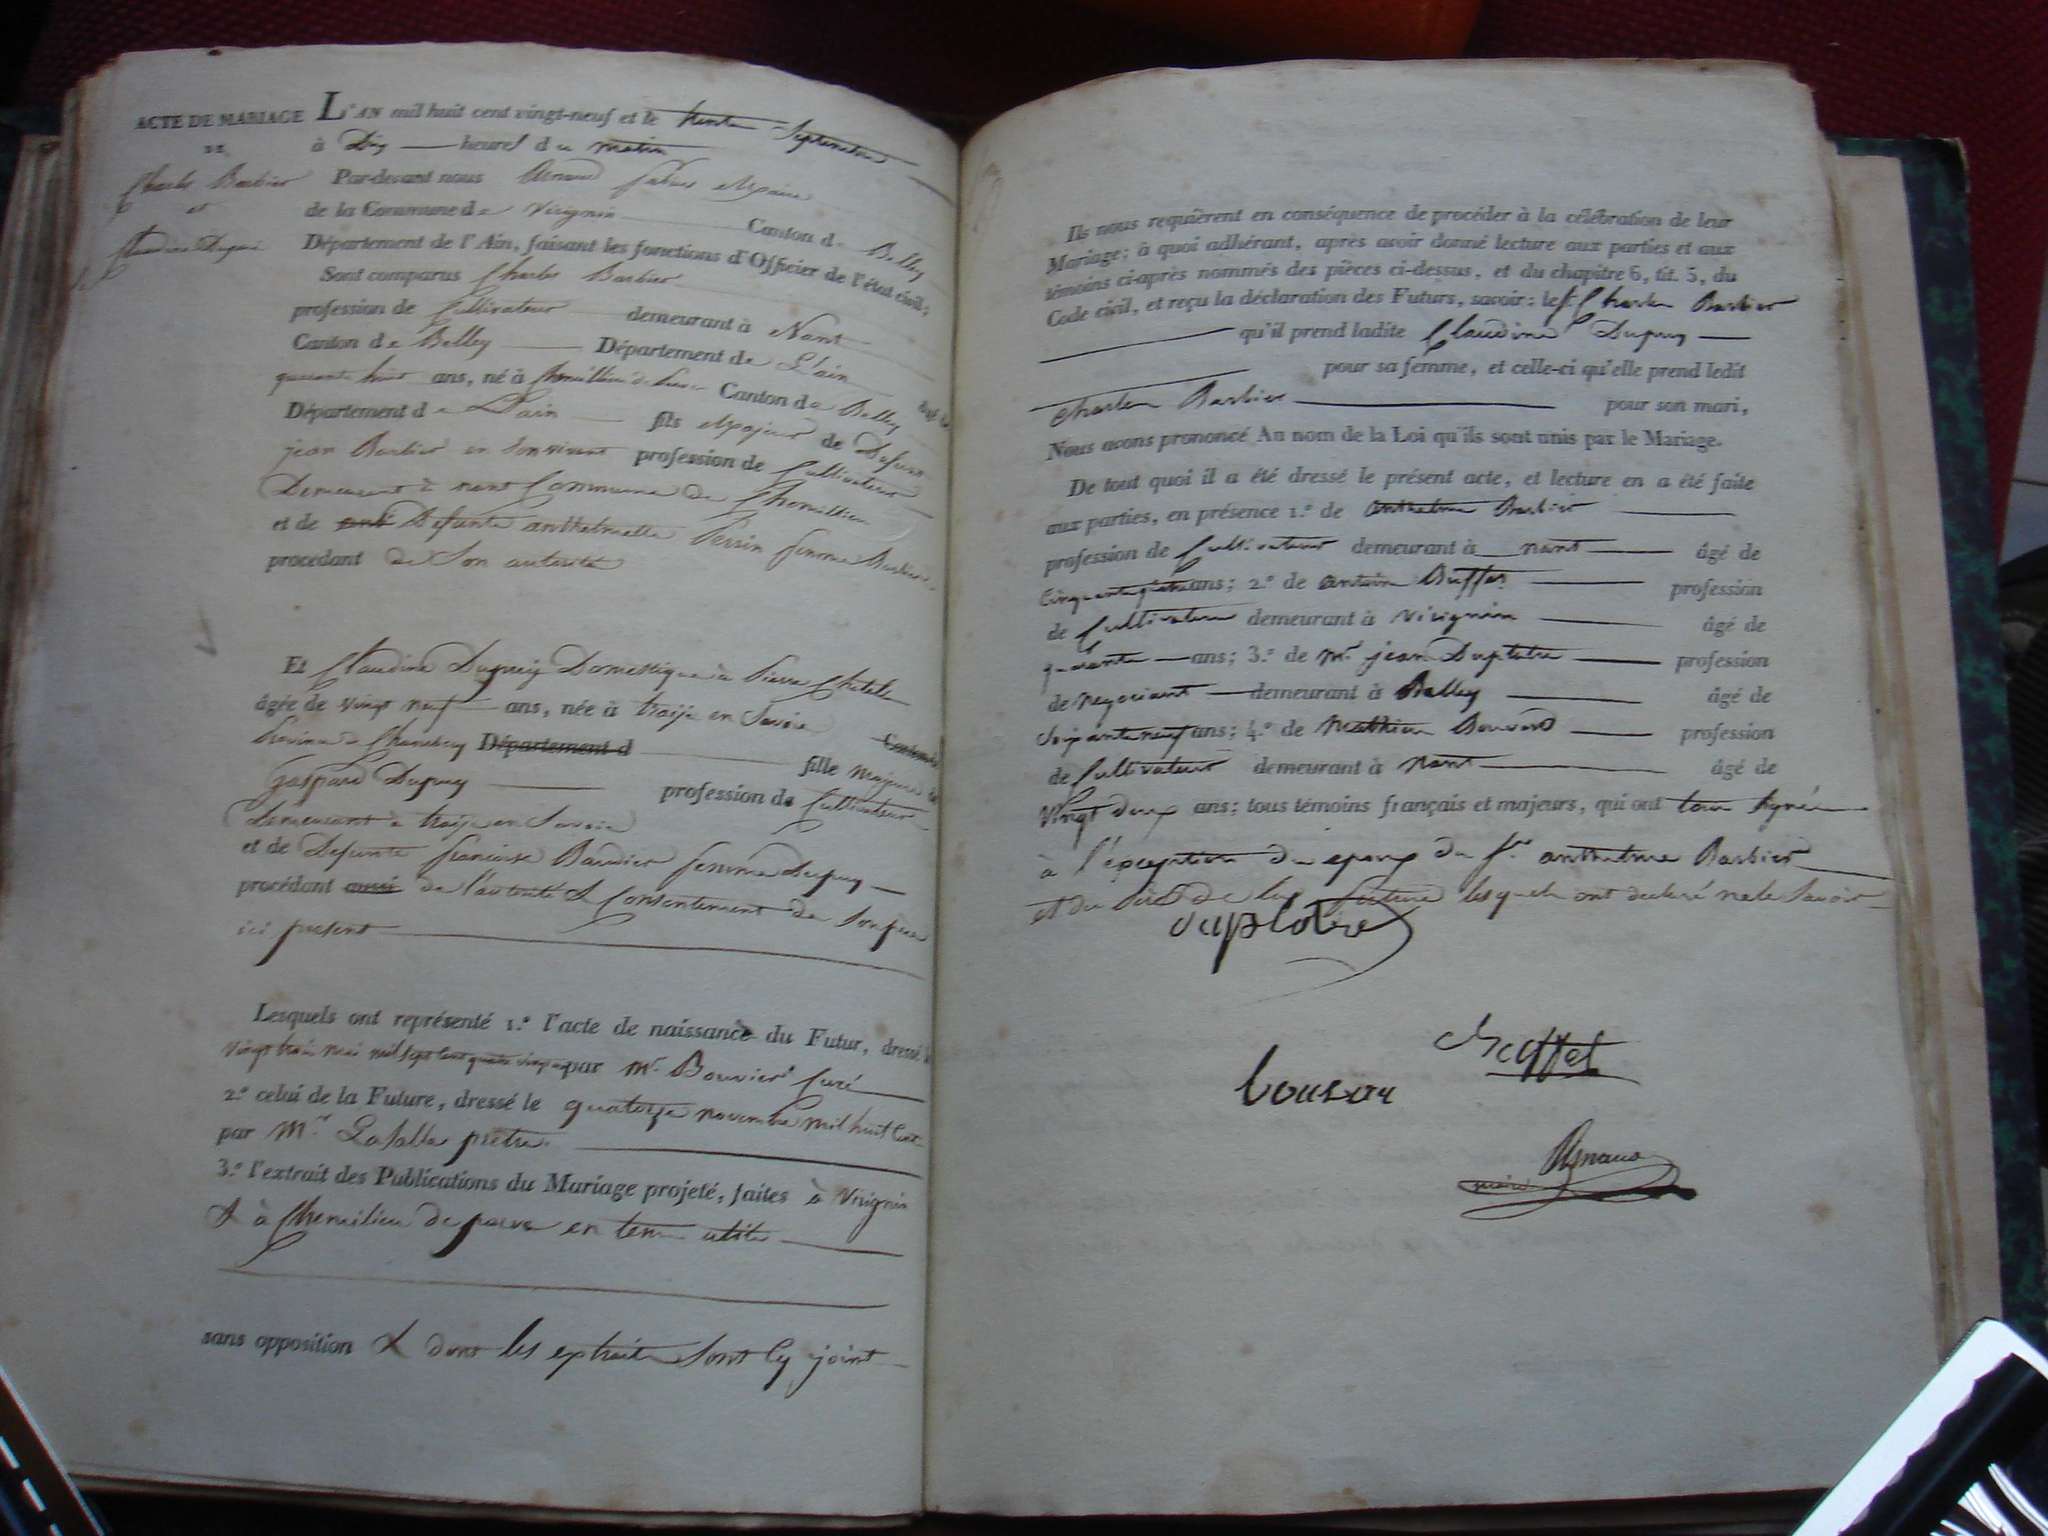 ACTE DE MARIAGE
DE
Charles Barbier
et
Claudine Dupui
L'AN mil huit cent vingt-neuf et le trente Septembre
à Dix heures du matin
Par-devant nous Maire
de la Commune de Virignin Canton de Belley
Département de l'Ain, faisant les fonctions d'Officier de l'état civil;
Sont comparus Charles Barbier
profession de Cultivateur demeurant à Nant
Canton de Belley Département de L'ain
quarante huit ans, né à Canton de Belley
Département de L'ain fils Majeur de Defunt
jean Barbier en son vivant profession de Cultivateur
Demeurant à nant Commune de Chemillieu
et de Defunte anthelmette Perrin femme Barbier
procédant de Son autorité
Et Claudine Dupuy Domestique à Pierre Chatel
âgée de vingt neuf ans, née à traize en Savoie Canton d
Province de Chambery Département d fille majeure de
Gaspard Dupuy profession de Cultivateur
Demeurant à traize en Savoie
et de Defunte francoise Baudier femme Dupuy
procédant aussi de l'autorité & Consentement de Son pere
ici present
Lesquels ont représenté 1.º l'acte de naissance du Futur, dressé le
vingt trois mai mil sept cent quatre vingt par Mr. Bouvier Curé
2.º celui de la Future, dressé le quatorze novembre mil huit cent
par Mr. Lasalle prêtre
3.º l'extrait des Publications du Mariage projeté, faites à Virignin
& à Chemilieu de parve en tems utile
sans opposition & dont les extraits sont Cy joint
Ils nous requièrent en conséquence de procéder à la célébration de leur
Mariage; à quoi adhérant, après avoir donné lecture aux parties et aux
témoins ci-après nommés des pièces ci-dessus, et du chapitre 6, tit. 5, du
Code civil, et reçu la déclaration des Futurs, savoir: le Sr. Charles Barbier
qu'il prend ladite Claudine Dupuy
pour sa femme, et celle-ci qu'elle prend ledit
Charles Barbier pour son mari,
Nous avons prononcé Au nom de la Loi qu'ils sont unis par le Mariage.
De tout quoi il a été dressé le présent acte, et lecture en a été faite
aux parties, en présence 1.º de anthelme Barbier
profession de Cultivateur demeurant à nant âgé de
Cinquante quatre ans; 2.º de antoine Buffet profession
de Cultivateur demeurant à Virignin âgé de
quarante ans; 3.º de Mr. jean Duplatre profession
de negociant demeurant à Belley âgé de
Soixante neuf ans; 4.º de Matthieu Bouvard profession
de Cultivateur demeurant à Nant âgé de
Vingt deux ans; tous témoins français et majeurs, qui ont tous Signés
à l'exception du epoux du Sr. anthelme Barbier
et du Pere de la future lesquels ont declaré ne le Savoir